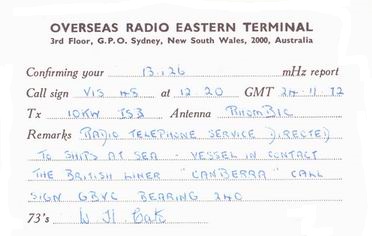 OVERSEAS RADIO EASTERN TERMINAL
3rd Floor, G.P.O. Sydney, New South Wales, 2000, Australia
Confirming your 13.126 mHz report
Call sign VIS 45 at 12.20 GMT 24.11.72
Tx 10KW IS3 Antenna RHOMBIC
Remarks RADIO TELEPHONE SERVICE DIRECTED
TO SHIPS AT SEA - VESSEL IN CONTACT
THE BRITISH LINER "CANBERRA" CALL
SIGN GBVC BEARING 240
73's W H